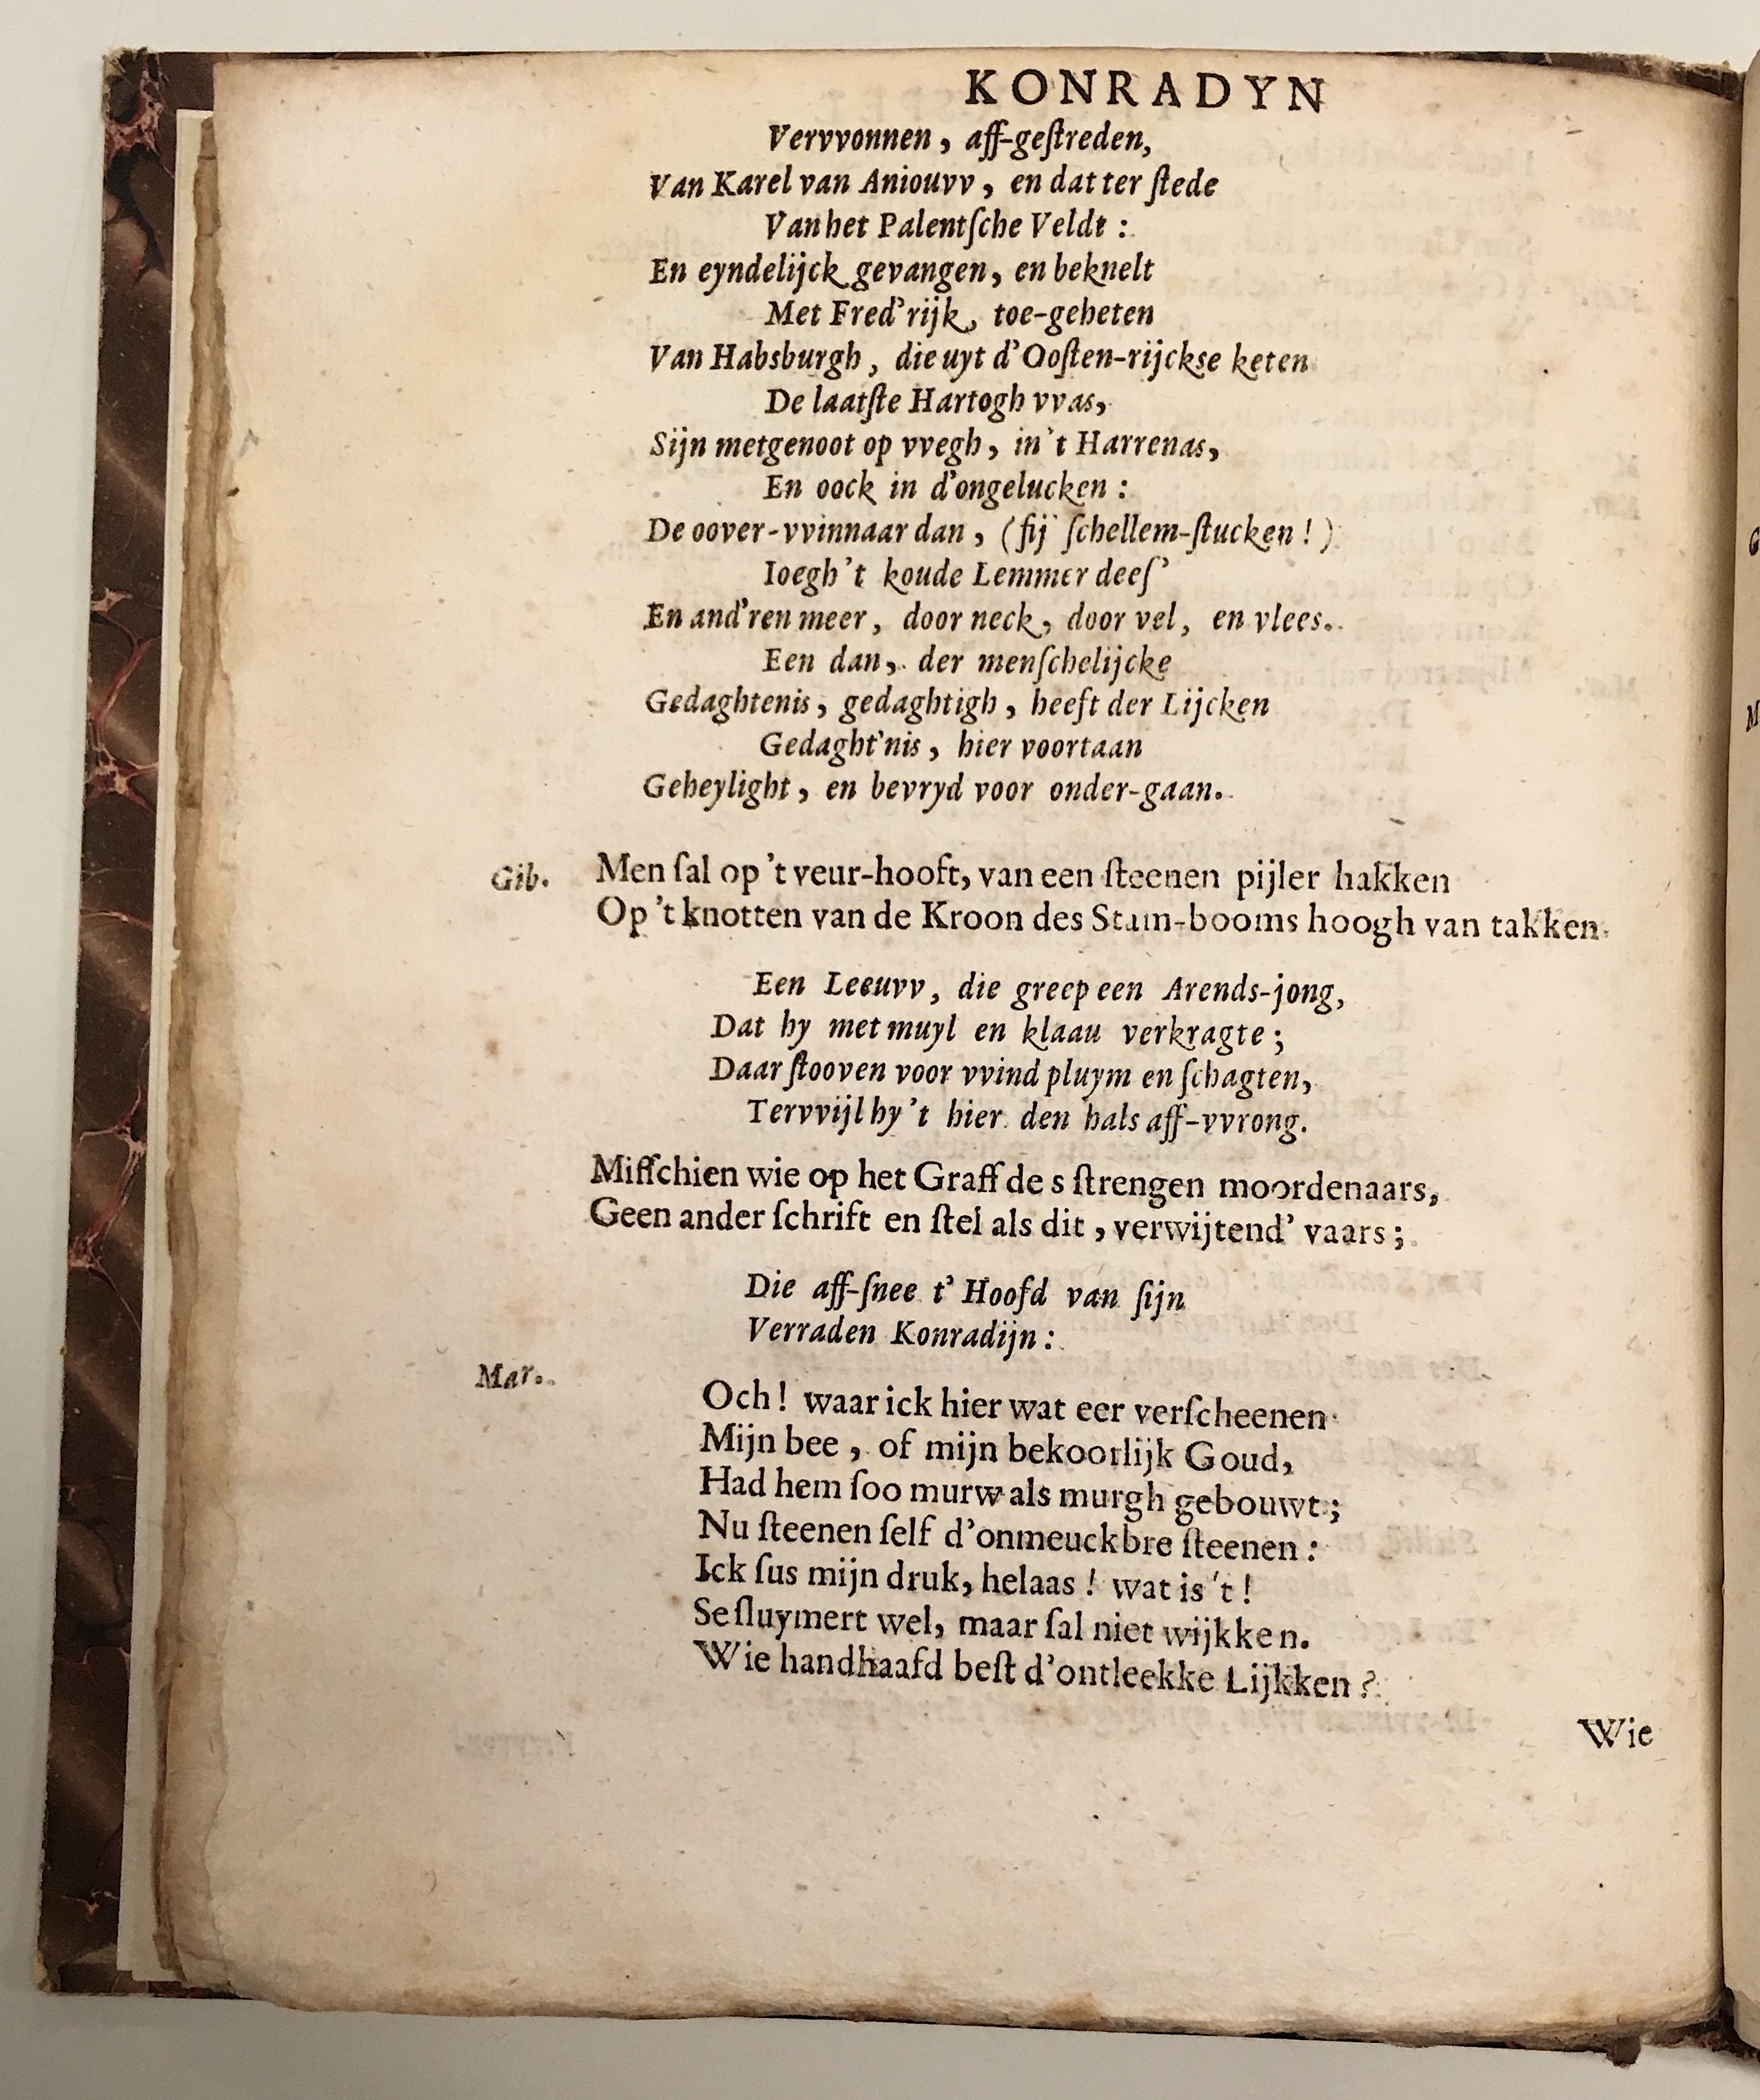 KONRADYN
Vervvonnen, aff-geſtreden,
Van Karel van Aniouvv, en dat ter ſtede
Van het Palentſche Veldt:
En eyndelijck gevangen, en beknelt
Met Fred'rijk, toe-geheten
Van Habsburgh, die uyt d'Ooſten-rijckse keten
De laatſte Hartogh vvas,
Sijn metgenoot op vvegh, in't Harrenas,
En oock in d'ongelucken:
De oover-vvinnaar dan, (fij ſchellem-ſtucken!)
Ioegh't koude Lemmer deeſ'
En and'ren meer, door neck, door vel, en vlees.
Een dan, der menſchelijcke
Gedaghtenis, gedaghtigh, heeft der Lijcken
Gedaght'nis, hier voortaan
Geheylight, en bevryd voor onder-gaan.
Gib. Men ſal op 't veur-hooft, van een ſteenen pijler hakken
Op 't knotten van de Kroon des Stam-booms hoogh van takken
Een Leeuvv, die greep een Arends-jong,
Dat hy met muyl en klaau verkragte;
Daar ſtooven voor vvind pluym en ſchagten,
Tervvijl hy 't hier den hals aff-vvrong.
Miſſchien wie op het Graff de s ſtrengen moordenaars,
Geen ander ſchrift en ſtel als dit, verwijtend' vaars;
Die aff-ſnee t' Hoofd van ſijn
Verraden Konradijn:
Mar.
Och! waar ick hier wat eer verſcheenen
Mijn bee, of mijn bekoorlijk Goud,
Had hem ſoo murw als murgh gebouwt;
Nu ſteenen ſelf d'onmeuckbre ſteenen:
Ick ſus mijn druk, helaas! wat is 't!
Se ſluymert wel, maar ſal niet wijkken.
Wie handhaafd beſt d'ontleekke Lijkken?
Wie